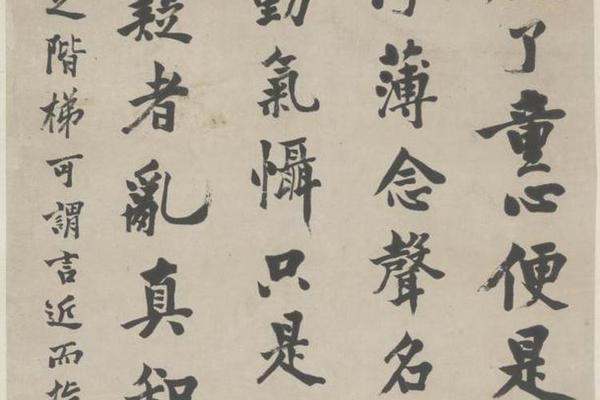 了童心便是
薄念聲名
氣懾只是
疑者亂真和
之階梯可謂言近而指